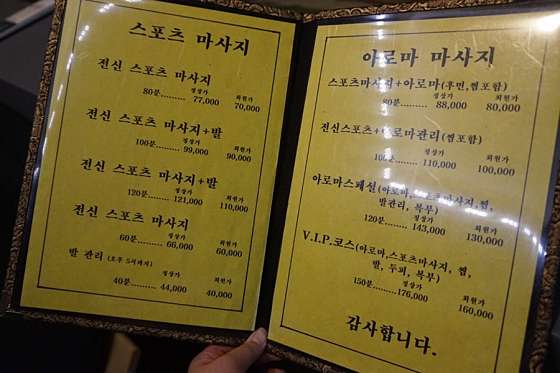 스포츠 마사지
전신 스포츠 마사지
정상가 회원가
80분.......... 77,000 70,000
전신 스포츠 마사지+발
정상가 회원가
100분.......... 99,000 90,000
전신 스포츠 마사지+발
정상가 회원가
120분.......... 121,000 110,000
전신 스포츠 마사지
정상가 회원가
60분.......... 66,000 60,000
발 관리 (오후 5시까지)
정상가 회원가
40분.......... 44,000 40,000
아로마 마사지
스포츠마사지+아로마(후면,찜포함)
정상가 회원가
80분.......... 88,000 80,000
전신스포츠+아로마관리(찜포함)
정상가 회원가
100분.......... 110,000 100,000
아로마스페셜(아로마,스포츠마사지,찜,
발관리, 복부)
정상가 회원가
120분.......... 143,000 130,000
V.I.P.코스(아로마,스포츠마사지, 찜,
발, 두피, 복부)
정상가 회원가
150분.......... 176,000 160,000
감사합니다.